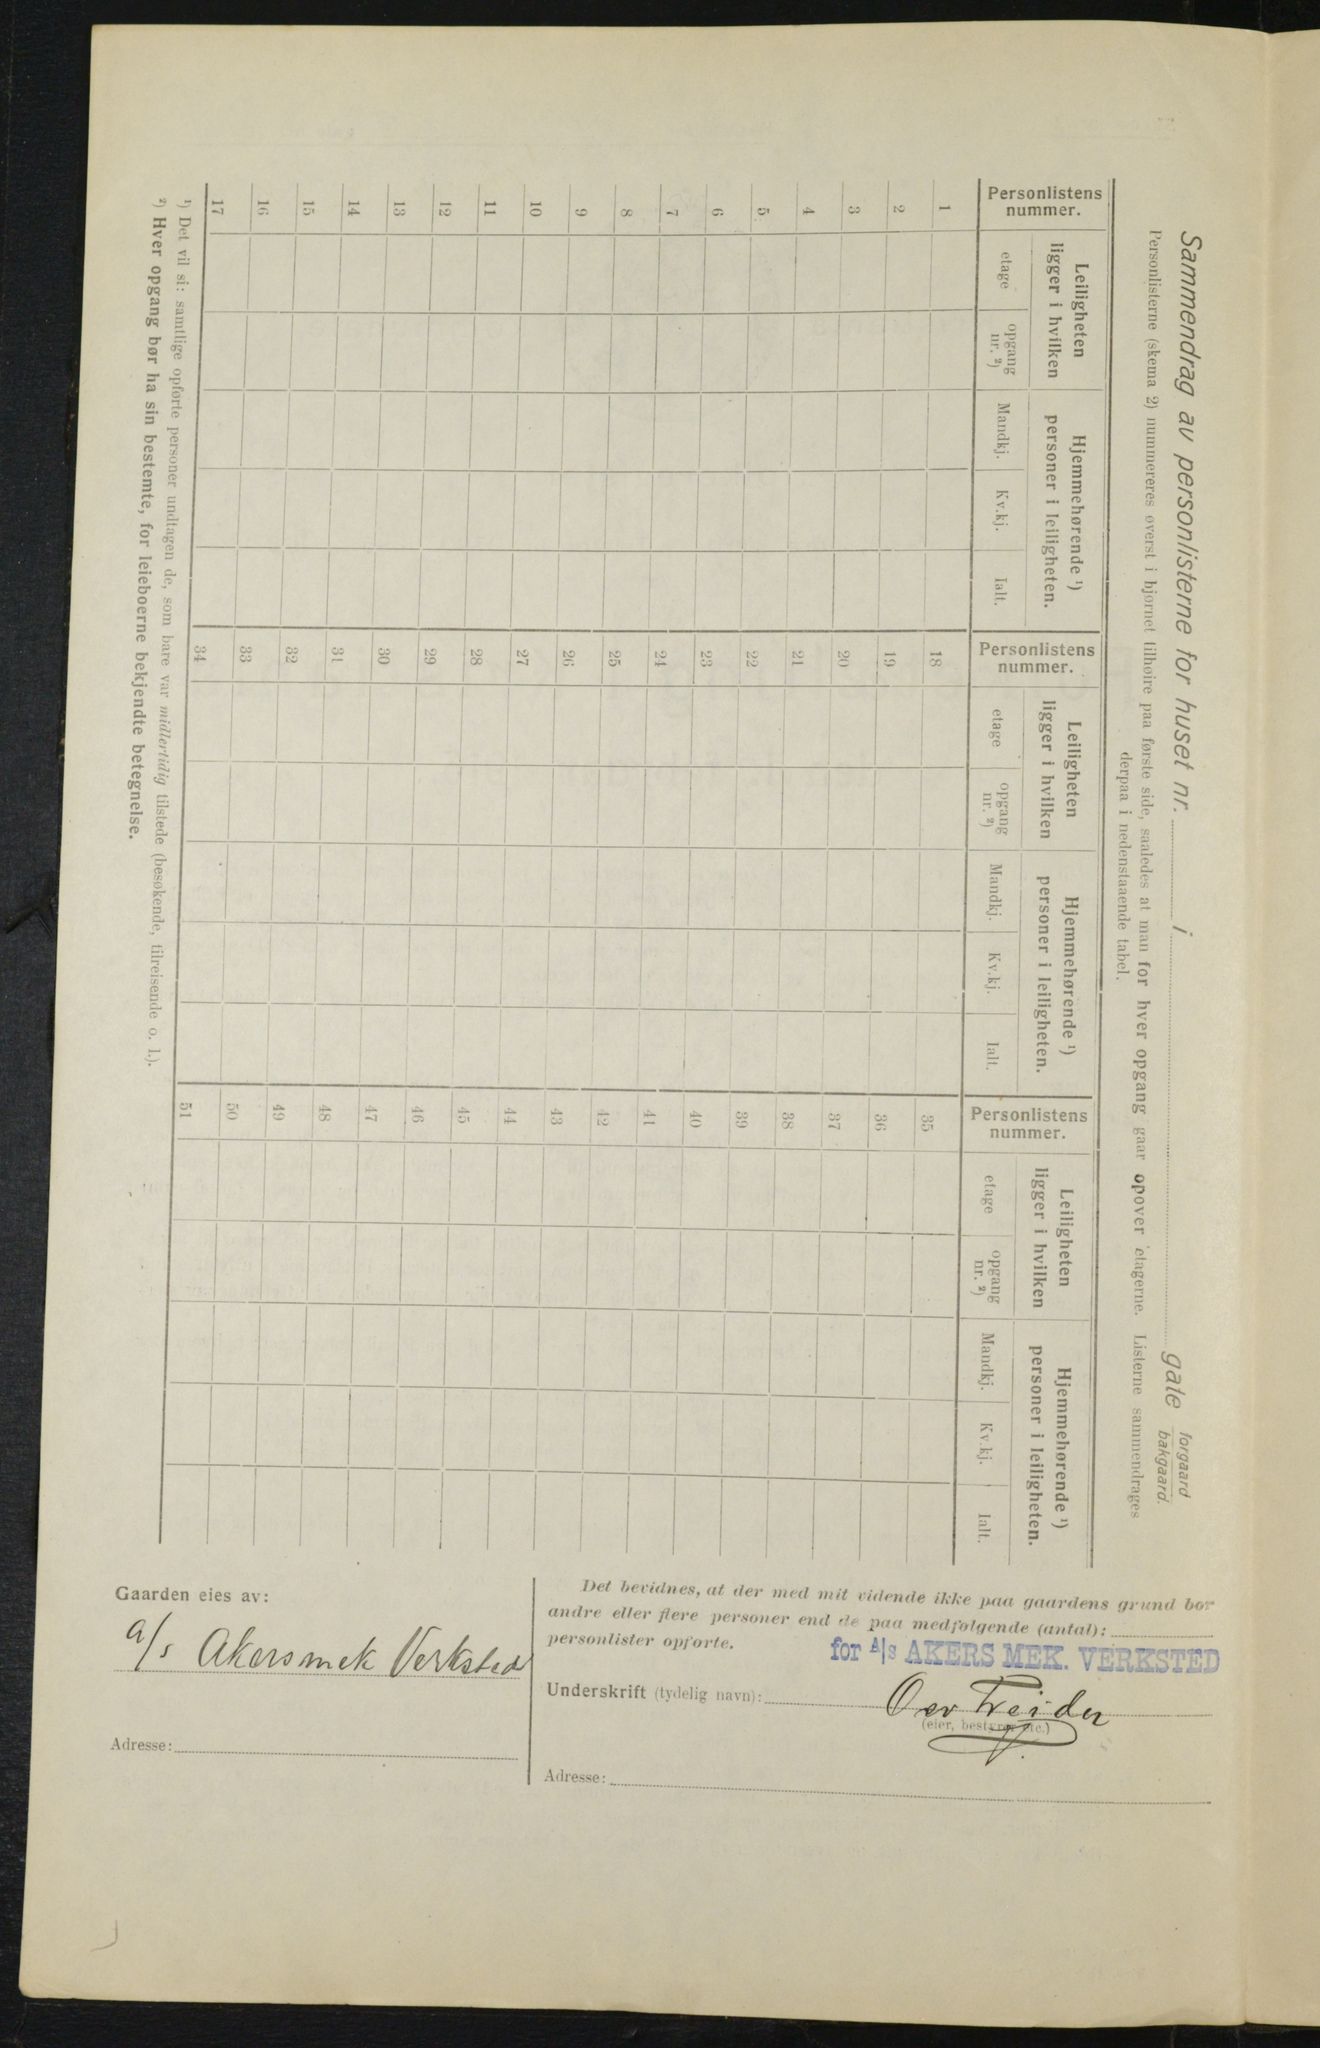 Sammendrag av personlisterne for huset nr. i gate forgaard
bakgaard.
Personlisterne (skema 2) nummereres øverst i hjørnet tilhøire paa første side, saaledes at man for hver opgang gaar opover etagerne. Listerne sammendrages
derpaa i nedenstaaende tabel.
Personlistens nummer.
Leiligheten ligger i hvilken
Hjemmehørende ¹) personer i leiligheten.
etage
opgang nr. ²)
Mandkj.
Kv.kj.
Ialt.
Personlistens nummer.
Leiligheten ligger i hvilken
Hjemmehørende ¹) personer i leiligheten.
etage
opgang nr. ²)
Mandkj.
Kv.kj.
Ialt.
Personlistens nummer.
Leiligheten ligger i hvilken
Hjemmehørende ¹) personer i leiligheten.
etage
opgang nr. ²)
Mandkj.
Kv.kj.
Ialt.
1 18 35
2 19 36
3 20 37
4 21 38
5 22 39
6 23 40
7 24 41
8 25 42
9 26 43
10 27 44
11 28 45
12 29 46
13 30 47
14 31 48
15 32 49
16 33 50
17 34 51
¹) Det vil si: samtlige opførte personer undtagen de, som bare var midlertidig tilstede (besøkende, tilreisende o. l.).
²) Hver opgang bør ha sin bestemte, for leieboerne bekjendte betegnelse.
Gaarden eies av:
a/s Akersmek Verksted
Adresse:
Det bevidnes, at der med mit vidende ikke paa gaardens grund bor
andre eller flere personer end de paa medfølgende (antal):
personlister opførte.
for A/S AKERS MEK. VERKSTED
Underskrift (tydelig navn):
(eier, bestyrer etc.)
Adresse: